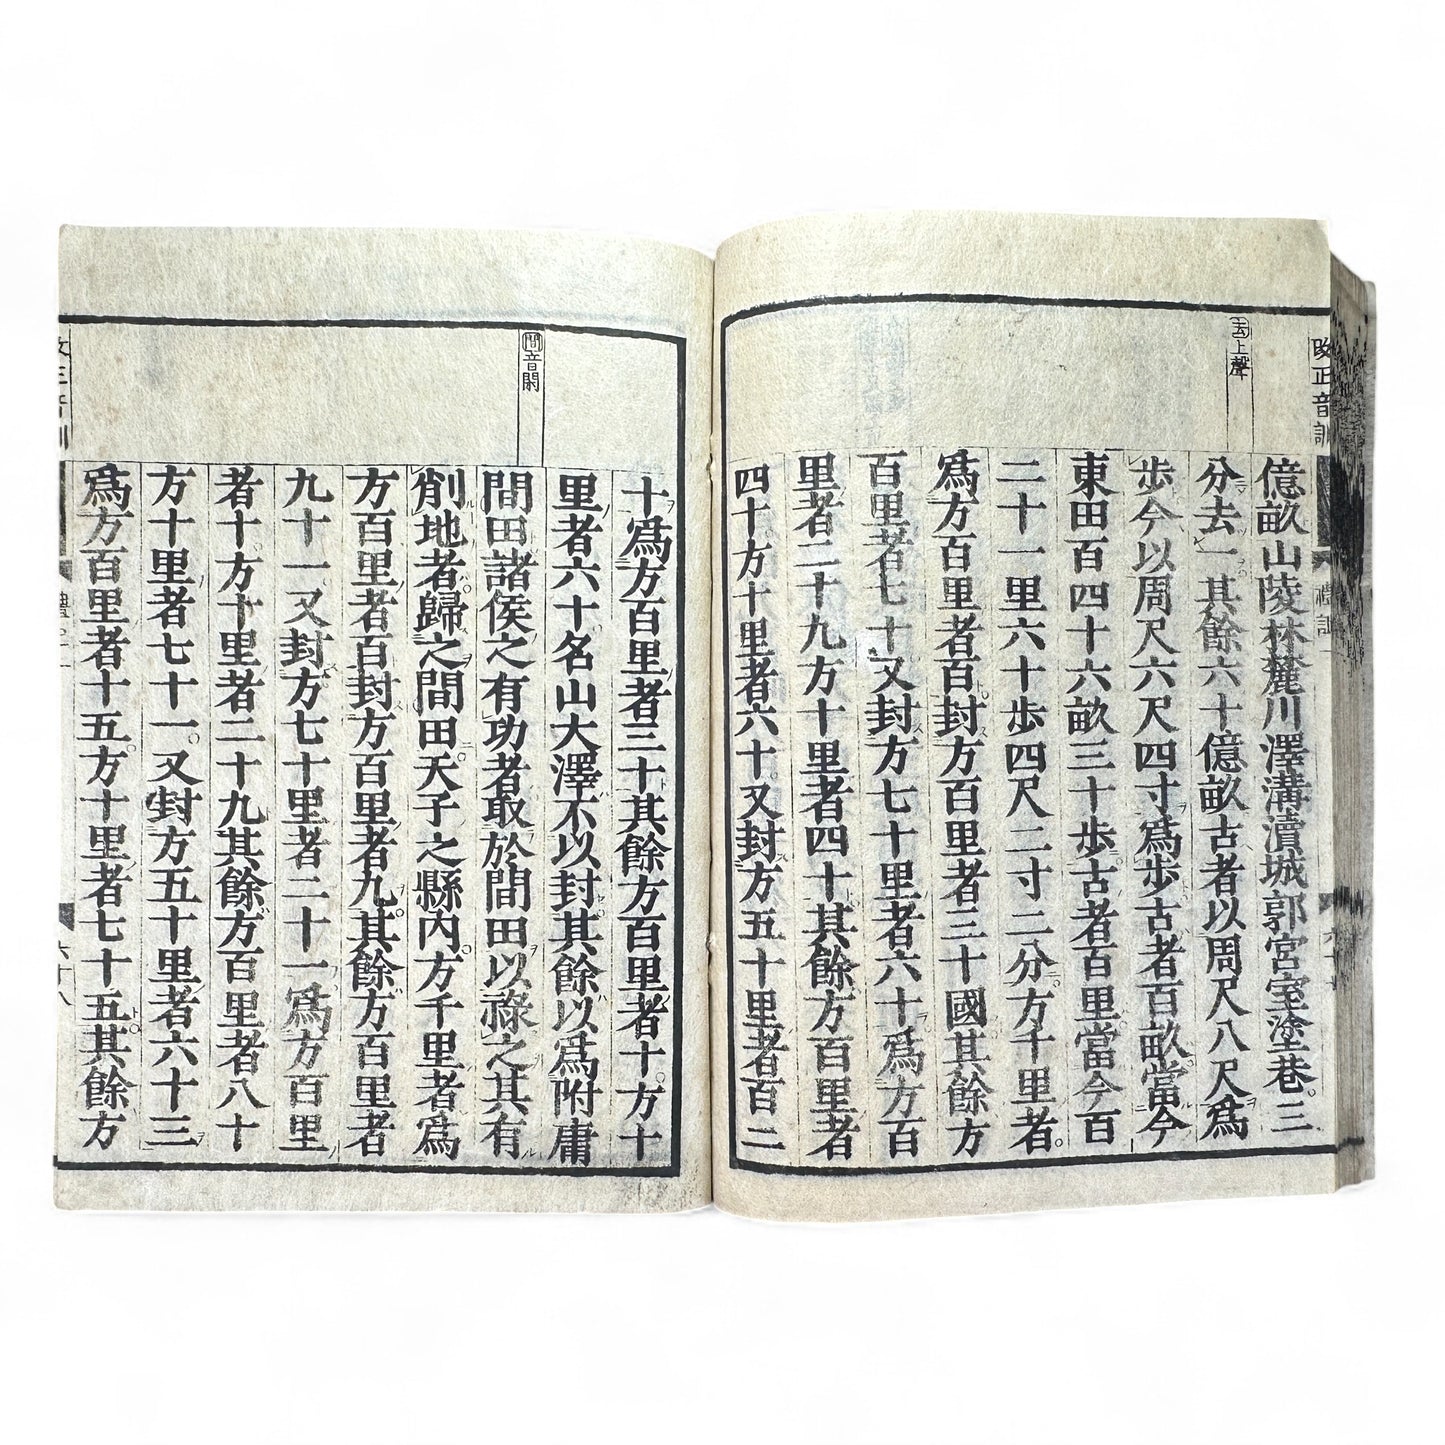 改正音訓
去上聲
億畝山陵林麓川澤溝瀆城郭宮室塗巷三
分去一其餘六十億畝古者以周尺八尺爲
歩今以周尺六尺四寸爲歩古者百畝當今
東田百四十六畝三十歩古者百里當今百
二十一里六十歩四尺二寸二分方千里者
爲方百里者百封方百里者三十國其餘方
百里者七十又封方七十里者六十爲方百
里者二十九方十里者四十其餘方百里者
四十方十里者六十又封方五十里者百二
間音閑
十爲方百里者三十其餘方百里者十方十
里者六十名山大澤不以封其餘以爲附庸
間田諸侯之有功者取於間田以祿之其有
削地者歸之間田天子之縣內方千里者爲
方百里者百封方百里者九其餘方百里者
九十一又封方七十里者二十一爲方百里
者十方十里者二十九其餘方百里者八十
方十里者七十一又封方五十里者六十三
爲方百里者十五方十里者七十五其餘方
六十八